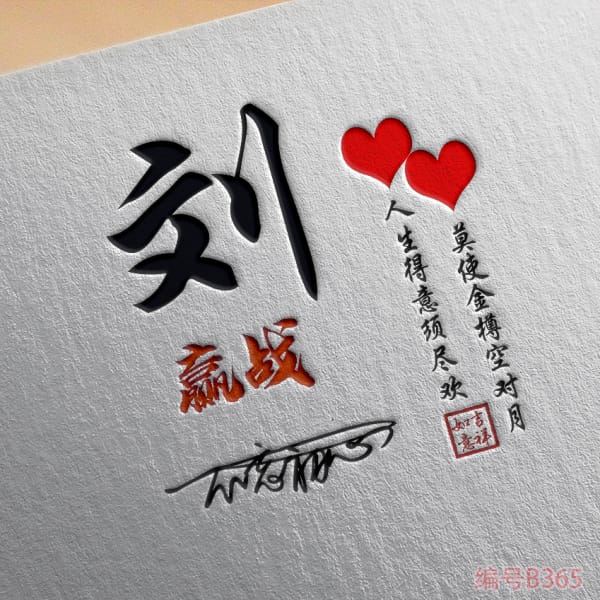 刘
赢战
人生得意须尽欢
莫使金樽空对月
吉祥
如意
编号B365